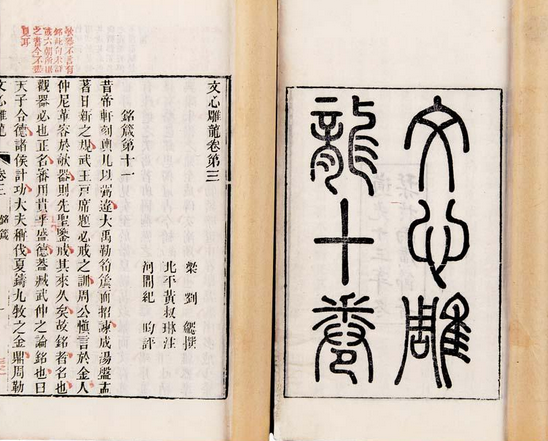 文心雕
龍十卷
文心雕龍卷第三
梁 劉 勰 撰
北平黃叔琳注
河間紀 昀評
銘箴第十一
昔帝軒刻輿几以弼違大禹勒筍簴而招諫成湯盤盂
著日新之規武王戶席題必戒之訓周公愼言於金人
仲尼革容於欹器則先聖鑒戒其來久矣故銘者名也
觀器必也正名審用貴乎盛德蓋臧武仲之論銘也曰
天子令德諸侯計功大夫稱伐夏鑄九牧之金鼎周勒
文心雕龍 卷三 銘箴
欹器不言有
銘此句未詳
或六朝所
之書今不盡
見耳